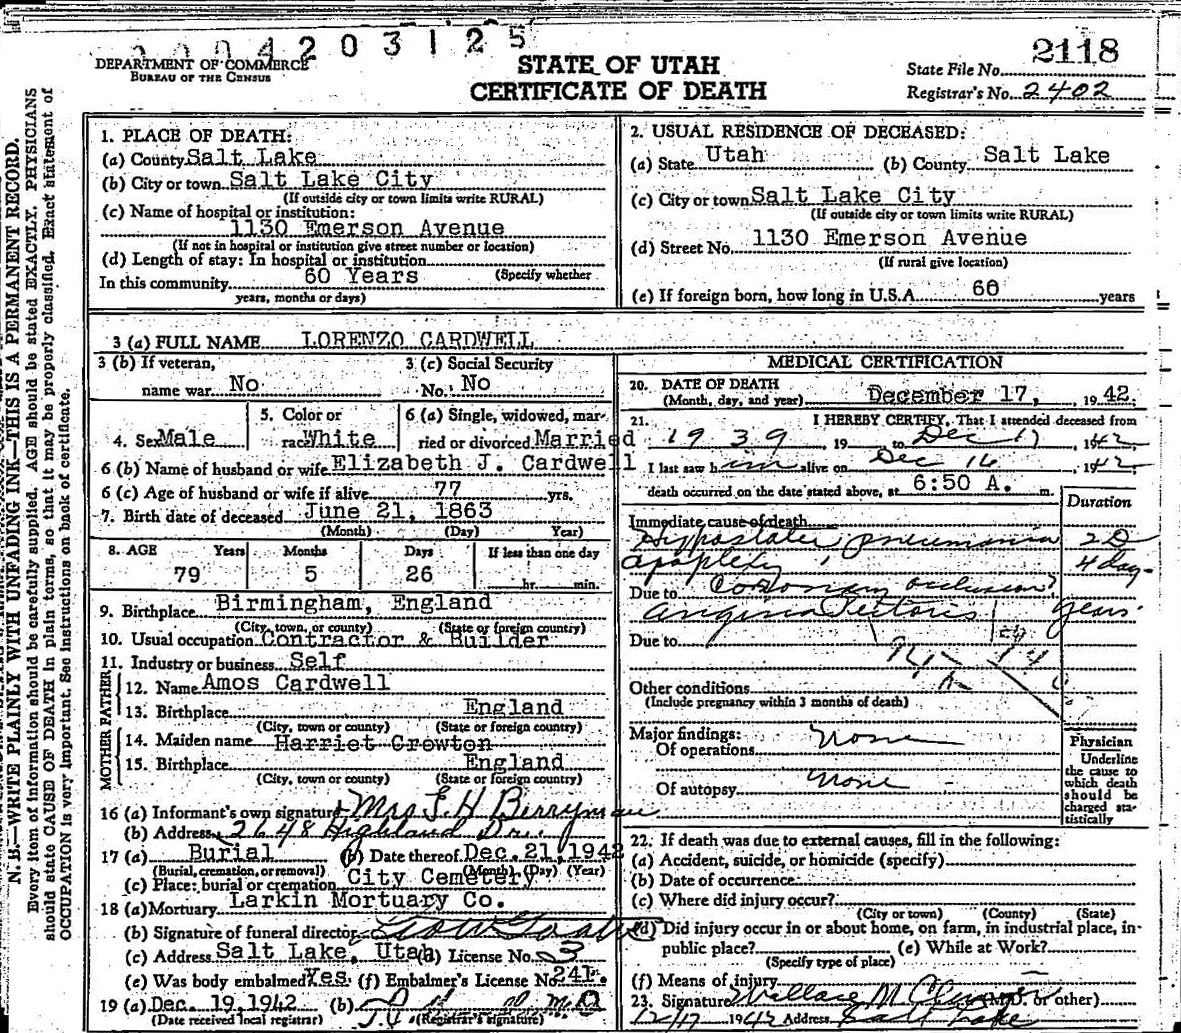 0004203125
DEPARTMENT OF COMMERCE
BUREAU OF THE CENSUS
STATE OF UTAH
CERTIFICATE OF DEATH
State File No. 2118
Registrar's No. 2402
N. B.—WRITE PLAINLY WITH UNFADING INK—THIS IS A PERMANENT RECORD.
Every item of information should be carefully supplied. AGE should be stated EXACTLY. PHYSICIANS
should state CAUSE OF DEATH in plain terms, so that it may be properly classified. Exact statement of
OCCUPATION is very important. See instructions on back of certificate.
1. PLACE OF DEATH:
(a) County Salt Lake
(b) City or town Salt Lake City
(If outside city or town limits write RURAL)
(c) Name of hospital or institution:
1130 Emerson Avenue
(If not in hospital or institution give street number or location)
(d) Length of stay: In hospital or institution
(Specify whether
In this community 60 Years
years, months or days)
2. USUAL RESIDENCE OF DECEASED:
(a) State Utah (b) County Salt Lake
(c) City or town Salt Lake City
(If outside city or town limits write RURAL)
(d) Street No. 1130 Emerson Avenue
(If rural give location)
(e) If foreign born, how long in U.S.A. 60 years
3 (a) FULL NAME LORENZO CARDWELL
3 (b) If veteran,
name war No
3 (c) Social Security
No. No
4. Sex Male
5. Color or
race White
6 (a) Single, widowed, mar-
ried or divorced Married
6 (b) Name of husband or wife Elizabeth J. Cardwell
6 (c) Age of husband or wife if alive 77 yrs.
7. Birth date of deceased June 21, 1863
(Month) (Day) Year)
8. AGE Years Months Days If less than one day
79 5 26 hr. min.
9. Birthplace Birmingham, England
(City, town, or county) (State or foreign country)
10. Usual occupation Contractor & Builder
11. Industry or business Self
FATHER
12. Name Amos Cardwell
13. Birthplace England
(City, town or county) (State or foreign country)
MOTHER
14. Maiden name Harriet Crowton
15. Birthplace England
(City, town or county) (State or foreign country)
16 (a) Informant's own signature Mrs L. H. Berryman
(b) Address 2648 Highland Dr.
17 (a) Burial (b) Date thereof Dec. 21, 1942
(Burial, cremation, or removal) (Month) (Day) (Year)
(c) Place: burial or cremation City Cemetery
18 (a) Mortuary Larkin Mortuary Co.
(b) Signature of funeral director
(c) Address Salt Lake, Utah (d) License No. 3
(e) Was body embalmed Yes (f) Embalmer's License No. 241.
19 (a) Dec. 19, 1942 (b) M.D
(Date received local registrar) (Registrar's signature)
MEDICAL CERTIFICATION
20. DATE OF DEATH
(Month, day, and year) December 17, 1942.
21. I HEREBY CERTIFY, That I attended deceased from
1939 19 to Dec 17, 1942
I last saw him alive on Dec 16, 1942.
death occurred on the date stated above, at 6:50 A. m.
Duration
Immediate cause of death
Hypostatic pneumonia 2 D
apoplexy 4 day
Due to Coronary occlusion?
Angina Pectoris years
Due to
94
Other conditions
(Include pregnancy within 3 months of death)
Major findings:
Of operations None
Of autopsy None
Physician
Underline
the cause to
which death
should be
charged sta-
tistically
22. If death was due to external causes, fill in the following:
(a) Accident, suicide, or homicide (specify)
(b) Date of occurrence
(c) Where did injury occur?
(City or town) (County) (State)
(d) Did injury occur in or about home, on farm, in industrial place, in-
public place? (e) While at Work?
(Specify type of place)
(f) Means of injury
23. Signature Wallace M (M.D. or other)
12/17 1942 Address Salt Lake